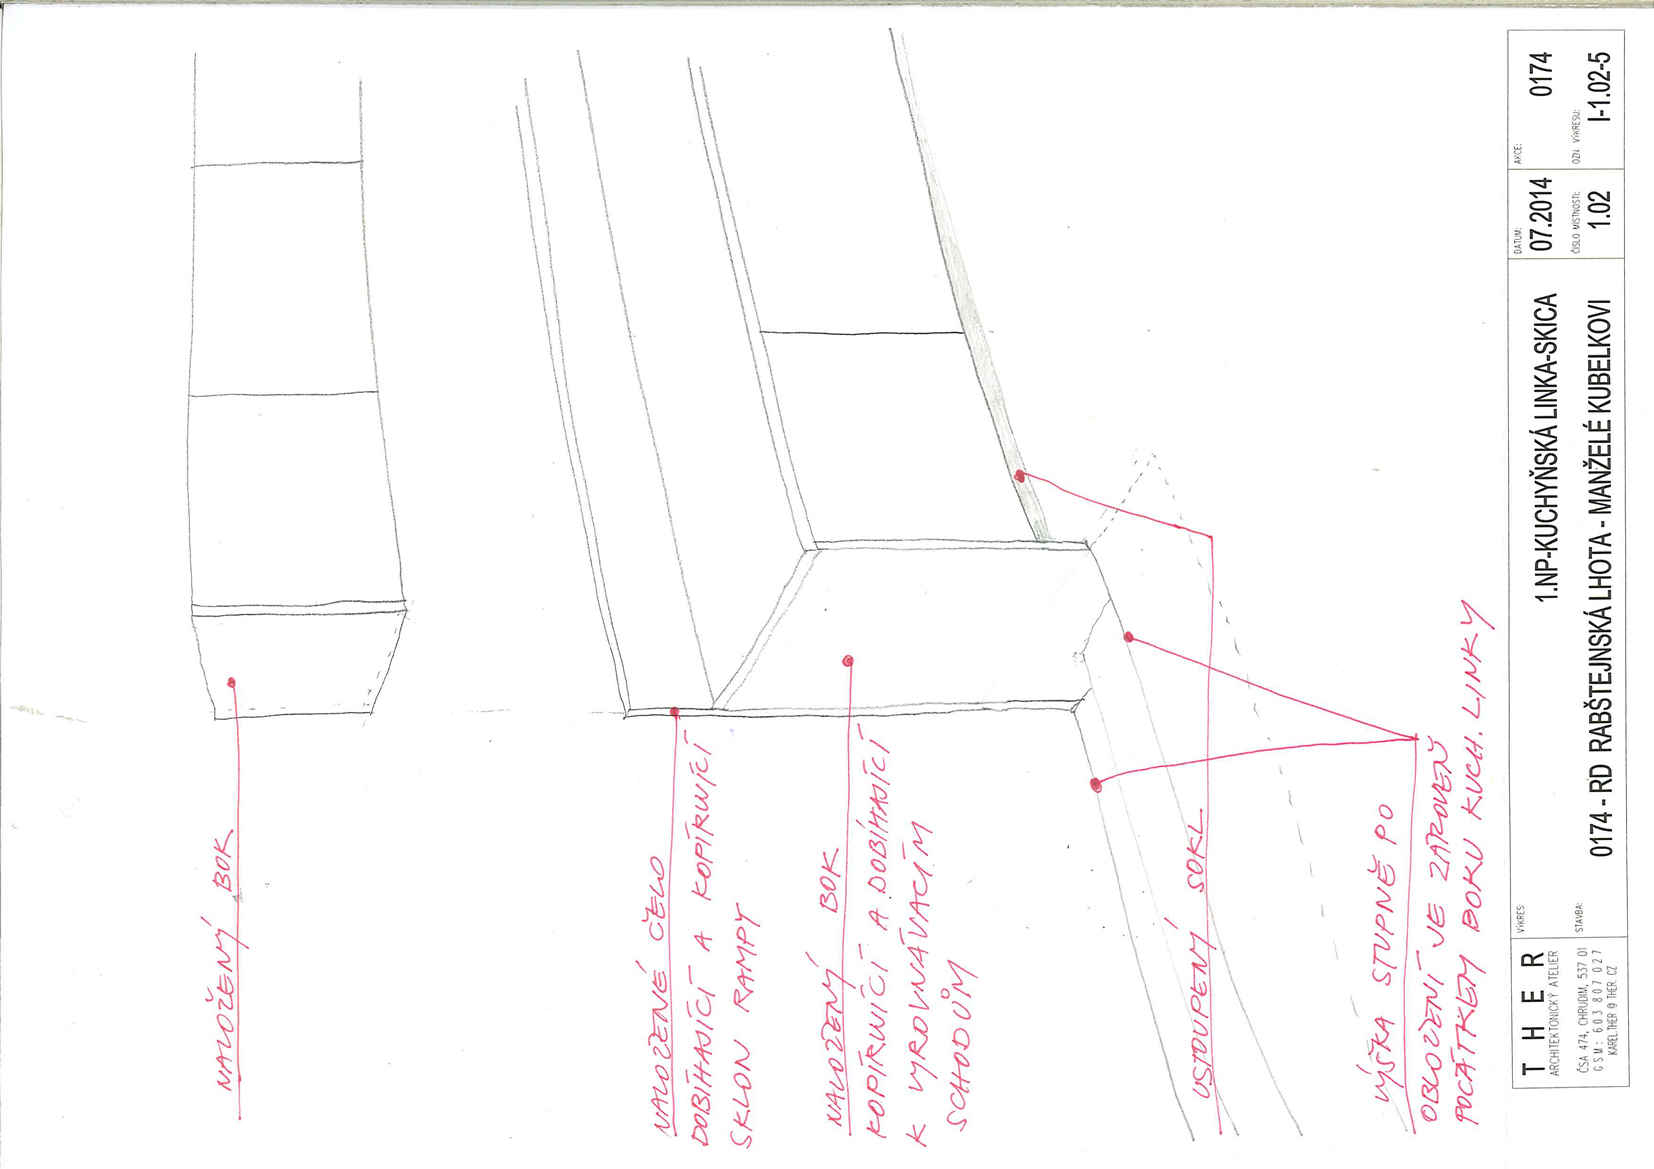 NALOŽENÝ BOK
NALOŽENÉ ČELO
DOBÍHAJÍCÍ A KOPÍRUJÍCÍ
SKLON RAMPY
NALOŽENÝ BOK
KOPÍRUJÍCÍ A DOBÍHAJÍCÍ
K VYROVNÁVACÍM
SCHODŮM
USTOUPENÝ SOKL
VÝŠKA STUPNĚ PO
OBLOŽENÍ JE ZÁROVEŇ
POČÁTKEM BOKU KUCH. LINKY
THER
ARCHITEKTONICKÝ ATELIER
ČSA 474, CHRUDIM, 537 01
GSM: 603 807 027
KAREL.THER@THER.CZ
VÝKRES:
1.NP-KUCHYŇSKÁ LINKA-SKICA
STAVBA:
0174 - RD RABŠTEJNSKÁ LHOTA - MANŽELÉ KUBELKOVI
DATUM:
07.2014
ČÍSLO MÍSTNOSTI:
1.02
AKCE:
0174
OZN. VÝKRESU:
I-1.02-5